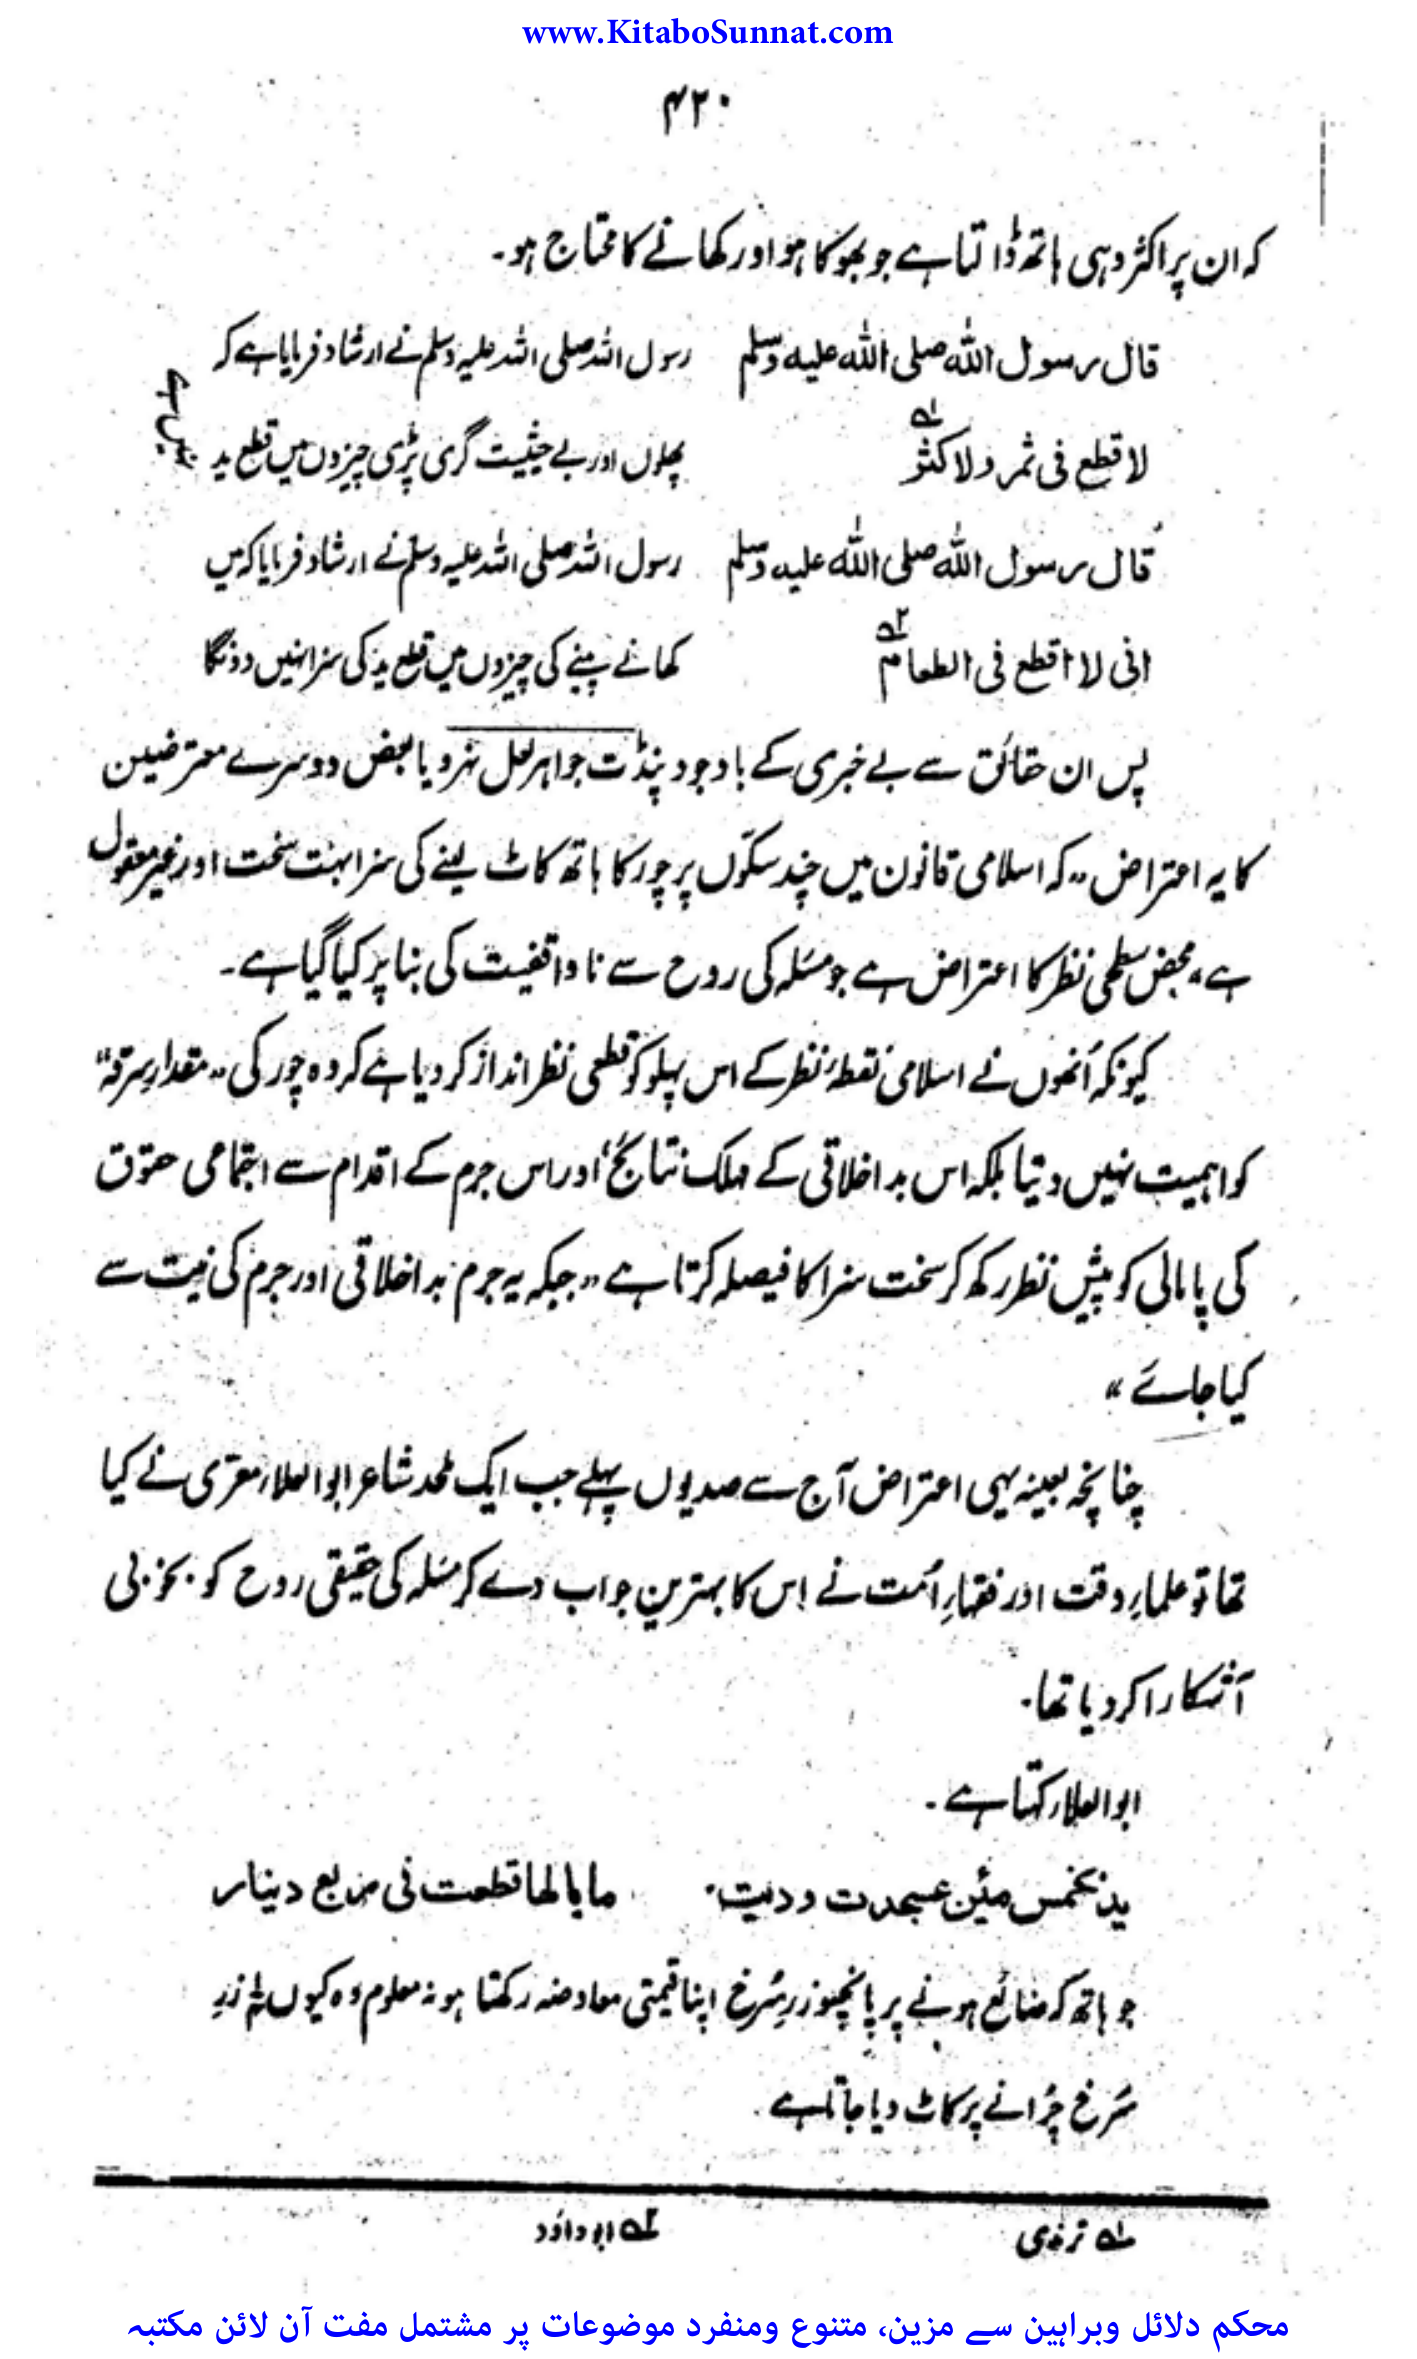 www.KitaboSunnat.com
۴۲۰
کہ ان پر اکثر وہی ہاتھ ڈالتا ہے جو بھوکا ہو اور کھانے کا محتاج ہو۔
قال رسول اللہ صلی اللہ علیہ وسلم رسول اللہ صلی اللہ علیہ وسلم نے ارشاد فرمایا ہے کہ
لا قطع فی ثمر ولا کثر ؎۱ پھلوں اور بے حیثیت گری پڑی چیزوں میں قطع ید نہیں ہے
قال رسول اللہ صلی اللہ علیہ وسلم رسول اللہ صلی اللہ علیہ وسلم نے ارشاد فرمایا کہ میں
انی لا اقطع فی الطعام ؎۲ کھانے پینے کی چیزوں میں قطع ید کی سزا نہیں دونگا
پس ان حقائق سے بے خبری کے باوجود پنڈت جواہر لعل نہرو یا بعض دوسرے معترضین
کا یہ اعتراض "کہ اسلامی قانون میں چند سکّوں پر چور کا ہاتھ کاٹ لینے کی سزا بہت سخت اور غیر معقول
ہے" محض سطحی نظر کا اعتراض ہے جو مسئلہ کی روح سے ناواقفیت کی بنا پر کیا گیا ہے۔
کیونکہ اُنھوں نے اسلامی نقطۂ نظر کے اس پہلو کو قطعی نظر انداز کر دیا ہے کہ وہ چور کی "مقدارِ سرقہ"
کو اہمیت نہیں دیتا بلکہ اس بد اخلاقی کے مہلک نتائج اور اس جرم کے اقدام سے اجتماعی حقوق
کی پامالی کو پیش نظر رکھ کر سخت سزا کا فیصلہ کرتا ہے "جبکہ یہ جرم بد اخلاقی اور جرم کی نیت سے
کیا جائے"
چنانچہ بعینہ یہی اعتراض آج سے صدیوں پہلے جب ایک ملحد شاعر ابو العلاء معرّی نے کیا
تھا تو علماءِ وقت اور فقہاءِ اُمت نے اِس کا بہترین جواب دے کر مسئلہ کی حقیقی روح کو بخوبی
آشکارا کر دیا تھا۔
ابو العلاء کہتا ہے۔
ید بخمس مئین عسجدت ودیت۔ ما بالھا قطعت فی ربع دینار
جو ہاتھ کہ ضائع ہونے پر پانچسو زرِ سُرخ اپنا قیمتی معاوضہ رکھتا ہو نہ معلوم وہ کیوں زرِ
سُرخ چُرانے پر کاٹ دیا جاتا ہے۔
؎۱ ترمذی ؎۲ ابو داؤد
محکم دلائل وبراہین سے مزین، متنوع ومنفرد موضوعات پر مشتمل مفت آن لائن مکتبہ